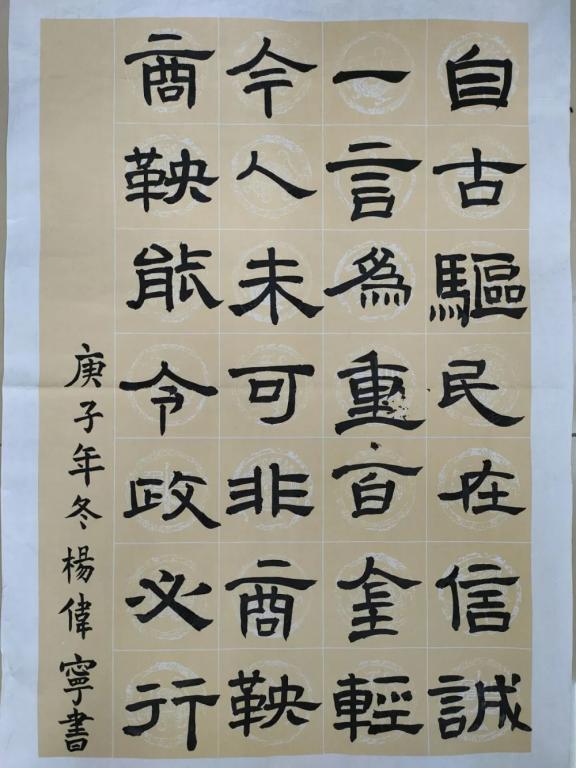 自古驅民在信誠
一言為重百金輕
今人未可非商鞅
商鞅能令政必行
庚子年冬楊偉寧書